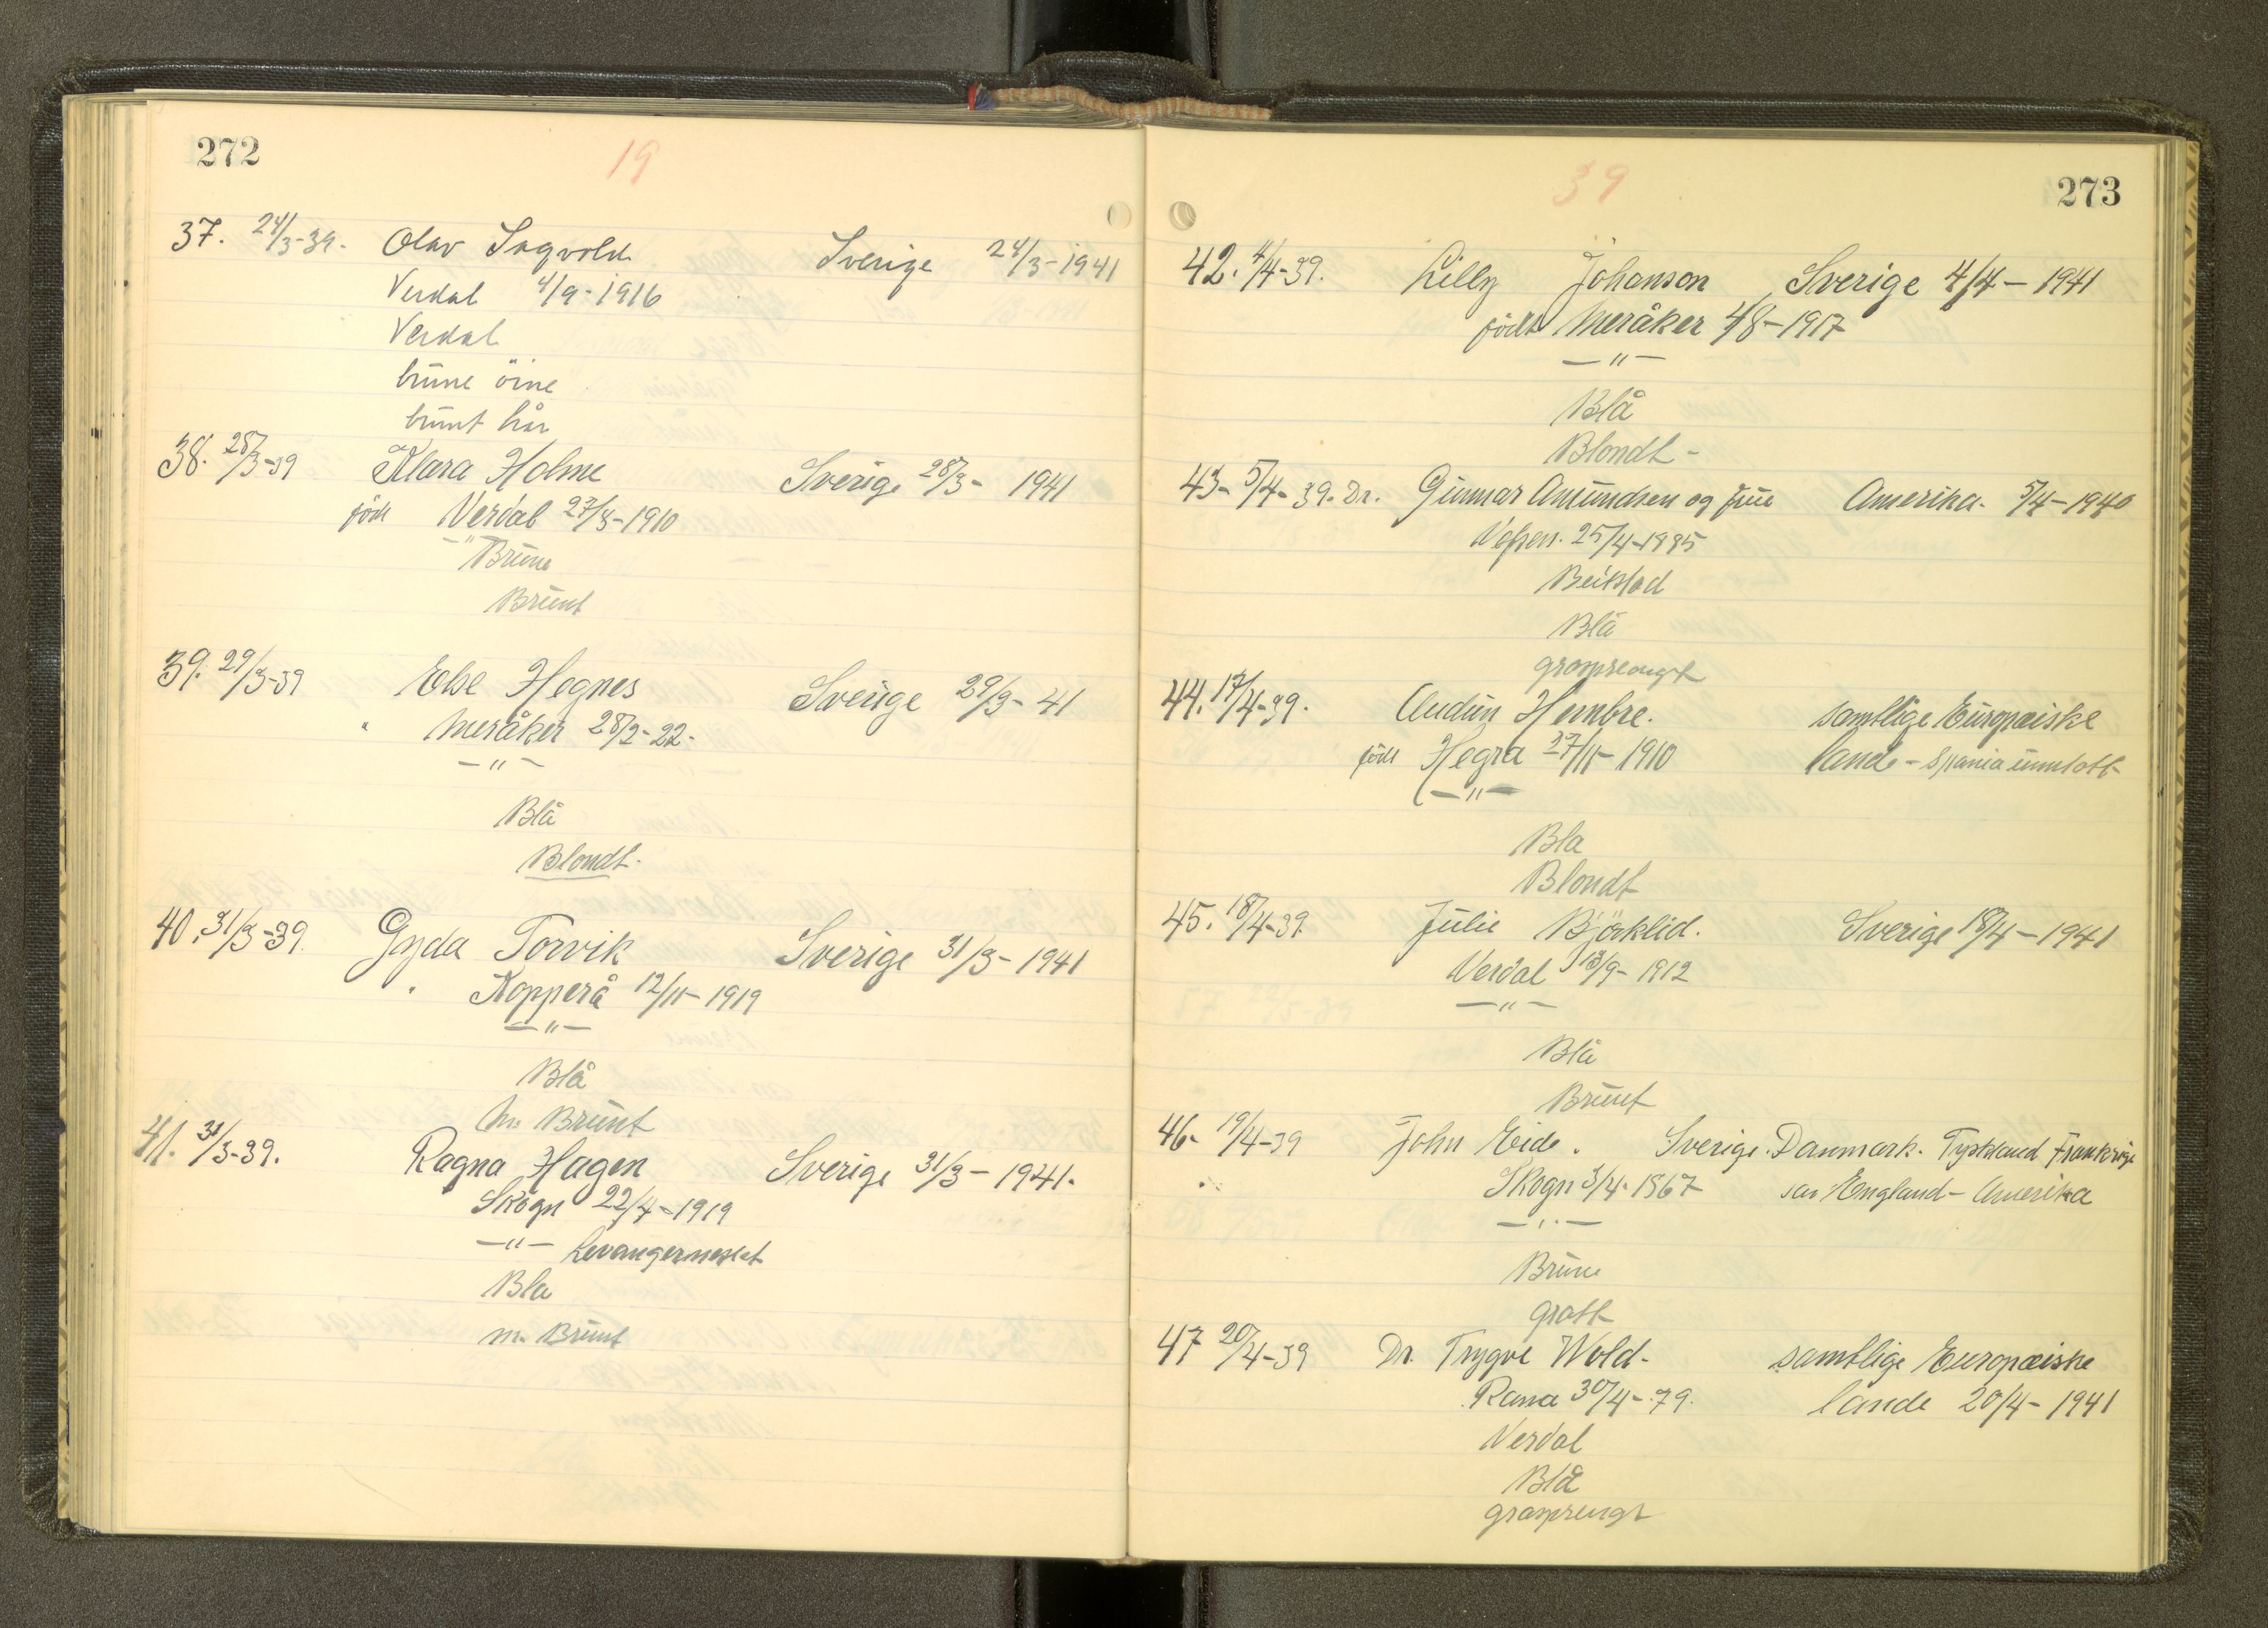 272
19
37. 24/3-39. Olav Sagvold Sverige 24/3-1941
Verdal 4/9-1916
Verdal
brune öine
brunt hår
38. 28/3-39 Klara Holme Sverige 28/3- 1941
född Verdal 27/8-1910
-"- Brune
Brunt
39. 29/3-39 Else Hegnes Sverige 29/3- 41
" Meråker 28/2-22-
-"-
Blå
Blondt.
40. 31/3-39. Gyda Torvik Sverige 31/3- 1941
" Kopperå 12/11-1919
-"-
Blå
m. Brunt
41. 31/3-39. Ragna Hagen Sverige 31/3- 1941.
Skogn 22/4-1919
-"- Levangernesset
Bla
m. Brunt
39
273
42. 4/4-39. Lilly Johanson Sverige 4/4- 1941
født Meråker 4/8-1917
-"-
Blå
Blondt-
43- 5/4-39. Dr. Gunnar Amundsen og frue Amerika. 5/4-1940
Vefsen. 25/4-1895
Beitstad
Blå
gråsprengt
44. 17/4-39. Audun Hembre. samtlige Europæiske
født Hegra 27/11-1910 lande - Spania unntatt
-"-
Bla
Blondt
45. 18/4-39. Julie Bjørklid. Sverige 18/4-1941
Verdal 13/9-1912
-"-
Blå
Brunt
46- 19/4-39 John Eide. Sverige. Danmark. Tyskland Frankrige
Skogn 3/4-1867 England- Amerika
-"-
Brune
grått
47 20/4-39 Dr. Trygve Wold- samtlige Europæiske
Rana 30/4-79. lande 20/4-1941
Verdal
Blå
gråsprengt